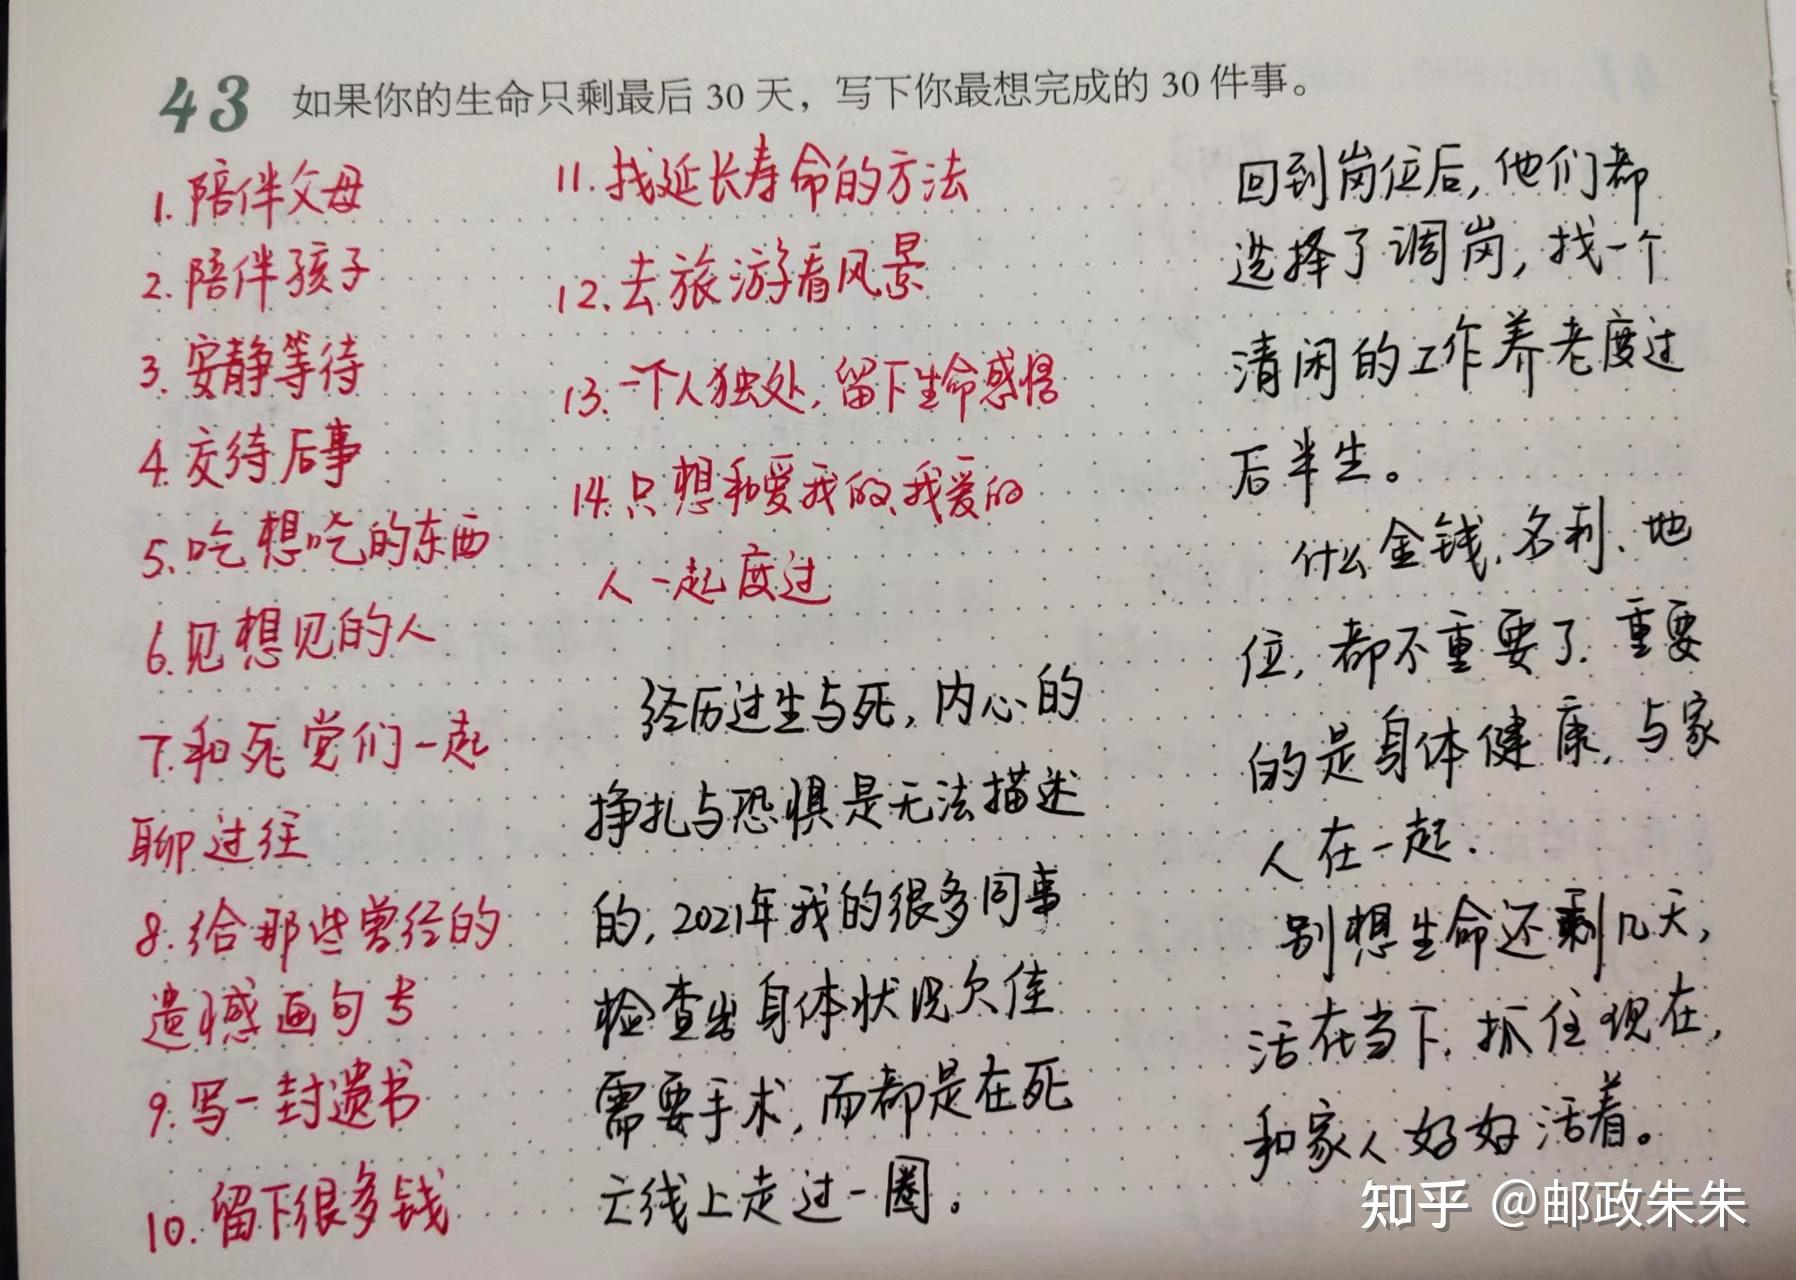 43 如果你的生命只剩最后 30 天，写下你最想完成的 30 件事。
1.陪伴父母
2.陪伴孩子
3.安静等待
4.交待后事
5.吃想吃的东西
6.见想见的人
7.和死党们一起
聊过往
8.给那些曾经的
遗憾画句号
9.写一封遗书
10.留下很多钱
11.找延长寿命的方法
12.去旅游看风景
13.一个人独处,留下生命感悟
14.只想和爱我的、我爱的
人一起度过
经历过生与死,内心的
挣扎与恐惧是无法描述
的,2021年我的很多同事
检查出身体状况欠佳
需要手术,而都是在死
亡线上走过一圈。
回到岗位后,他们都
选择了调岗,找一个
清闲的工作养老度过
后半生。
什么金钱、名利、地
位,都不重要了.重要
的是身体健康,与家
人在一起.
别想生命还剩几天,
活在当下,抓住现在,
和家人好好活着。
知乎 @邮政朱朱